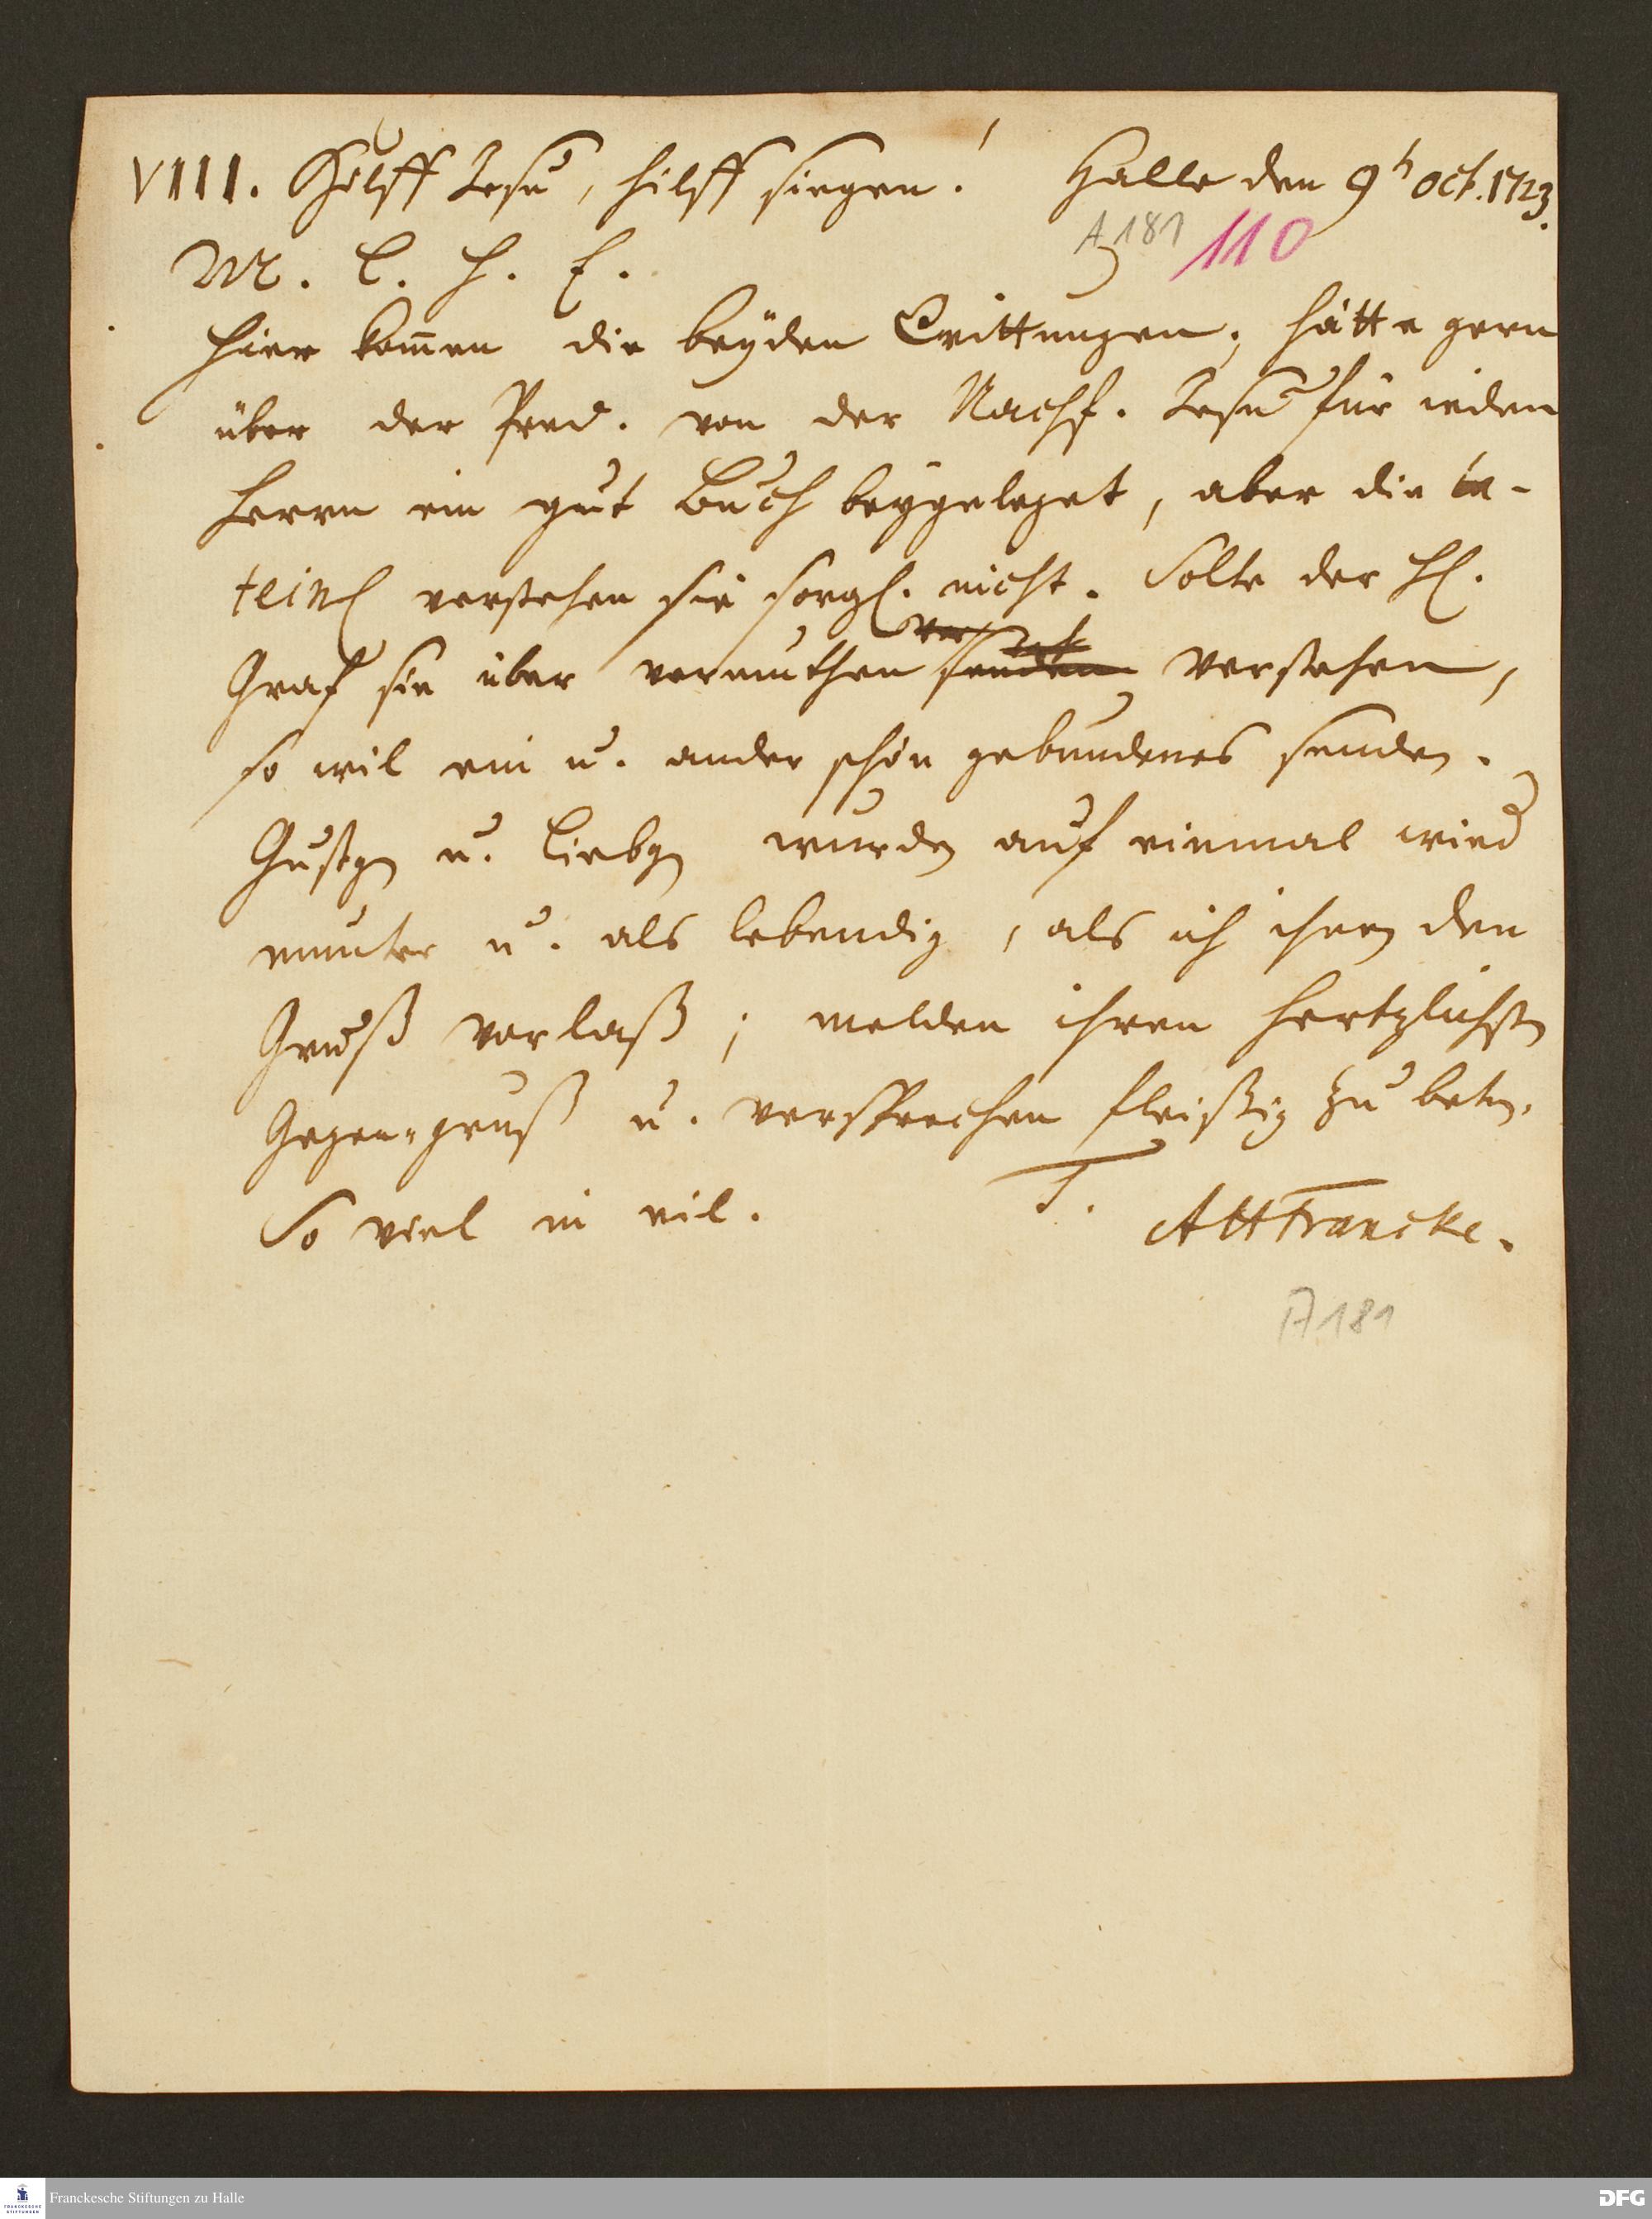 VIIII. Hilff Jesu, hilff siegen! Halle den 9t Oct. 1723.
A 181 110
M. l. H. E.
Hier kom̅en die beyden Qvittungen, hätte gern
über der Pred. von der Nachf. Jesu für ieden
Herrn ein gut Buch beygeleget, aber die la-
teinl verstehen sie sorgl. nicht. Solte der Hl.
Graf sie über vermuthen senden verstehen,
so wil ein u. ander schön gebundenes senden.
Gustgen u. Liebgen wurden auf einmal wied
munter u. als lebendig, als ich ihnen den
Gruß vorlaß; melden ihren hertzlichsten
Gegen-gruß u. versprechen fleißig zu beten.
So viel in eil. T. AHFrancke.
A 181
Franckesche Stiftungen zu Halle
FRANCKESCHE STIFTUNGEN
DFG